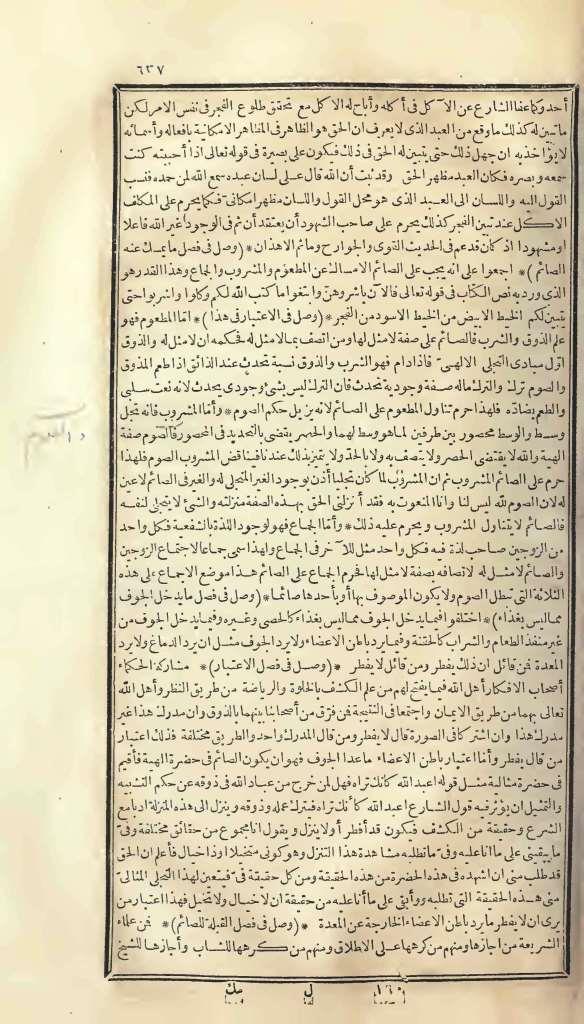 ٦٣٧
أحد وكما عفا الشارع عن الآكل فى أكله وأباح له الاكل مع تحقق طلوع الفجر فى نفس الامر لكن
ما تبين له كذلك ما وقع من العبد الذى لا يعرف ان الحق هو الظاهر فى المظاهر الامكانية بافعاله وأسمائه
لا يؤاخذ به ان جهل ذلك حتى يتبين له الحق فى ذلك فيكون على بصيرة فى قوله تعالى اذا أحببته كنت
سمعه وبصره فكان العبد مظهر الحق وقد ثبت أن الله قال على لسان عبده سمع الله لمن حمده فنسب
القول اليه واللسان الى العبد الذى هو محل القول واللسان مظهر امكانى فكما يحرم على المكلف
الاكل عند تبين الفجر كذلك يحرم على صاحب الشهود أن يعتقد أن ثم فى الوجود غير الله فاعلا
او مشهودا اذ كان قد عم فى الحديث القوى والجوارح وما ثم الا هذان * (وصل فى فصل ما يمسك عنه
الصائم) * اجمعوا على انه يجب على الصائم الامساك عن المطعوم والمشروب والجماع وهذا القدر هو
الذى ورد به نص الكتاب فى قوله تعالى فالآن باشروهن وابتغوا ما كتب الله لكم وكلوا واشربوا حتى
يتبين لكم الخيط الابيض من الخيط الاسود من الفجر * (وصل فى الاعتبار فى هذا) * اما المطعوم فهو
علم الذوق والشرب فالصائم على صفة لا مثل لها ومن اتصف بما لا مثل له فحكمه ان لا مثل له والذوق
اول مبادى التجلى الالهى فاذا دام فهو الشرب والذوق نسبة تحدث عند الذائق اذا طعم المذوق
والصوم ترك والترك ماله صفة وجودية تحدث فان الترك ليس بشئ وجودى يحدث لانه نعت سلبى
والطعم يضاده فلهذا حرم تناول المطعوم على الصائم لانه يزيل حكم الصوم * وأما المشروب فانه تجل
وسط والوسط محصور بين طرفين لما هو وسط لهما والحصر يقضى بالتحديد فى المحصور فالصوم صفة
الهية والله لا يقتضى الحصر ولا يتصف به ولا بالحد ولا يتميز بذلك عندنا فناقض المشروب الصوم فلهذا
حرم على الصائم المشروب ثم ان المشروب لما كان تجليا أذن بوجود الغير المتجلى له والغير فى الصائم لا عين
له لان الصوم لله ليس لنا وانا المنعوت به فقد أنزلنى الحق بهذه الصفة منزلته والشئ لا يتجلى لنفسه
فالصائم لا يتناول المشروب ويحرم عليه ذلك * وأما الجماع فهو لوجود اللذة بالشفعية فكل واحد
من الزوجين صاحب لذة فيه فكل واحد مثل للآخر فى الجماع ولهذا سمى جماعا لاجتماع الزوجين
والصائم لا مثل له لاتصافه بصفة لا مثل لها فحرم الجماع على الصائم هذا موضع الاجماع على هذه
الثلاثة التى تبطل الصوم ولا يكون الموصوف بها أو بأحدها صائما * (وصل فى فصل ما يدخل الجوف
مما ليس بغذاء) * اختلفوا فيما يدخل الجوف مما ليس بغذاء كالحصى وغيره وفيما يدخل الجوف من
غير منفذ الطعام والشراب كالحقنة وفيما يرد باطن الاعضاء ولا يرد الجوف مثل ان يرد الدماغ ولا يرد
المعدة فمن قائل ان ذلك يفطر ومن قائل لا يفطر * (وصل فى فصل الاعتبار) * مشاركة الحكماء
أصحاب الافكار أهل الله فيما يفتح لهم من علم الكشف بالخلوة والرياضة من طريق النظر وأهل الله
تعالى بهما من طريق الايمان واجتمعا فى النتيجة فمن فرق من أصحابنا بينهما بالذوق وان مدرك هذا غير
مدرك هذا وان اشتركا فى الصورة قال لا يفطر ومن قال المدرك واحد والطريق مختلفة فذلك اعتبار
من قال يفطر وأما اعتبار باطن الاعضاء ما عدا الجوف فهو ان يكون الصائم فى حضرة الهية فأقيم
فى حضرة مثالية مثل قوله اعبد الله كانك تراه فهل لمن خرج من عباد الله فى ذوقه عن حكم التشبيه
والتمثيل ان يؤثر فيه قول الشارع اعبد الله كأنك تراه فيترك عمله وذوقه وينزل الى هذه المنزلة ادبا مع
الشرع وحقيقة من الكشف فيكون قد أفطر أو لا ينزل ويقول انا مجموع من حقائق مختلفة وفى
ما يبقينى على ما انا عليه وفى ما تطلبه مشاهدة هذا التنزل وهو كونى متخيلا او ذا خيال فأعلم ان الحق
قد طلب منى ان اشهده فى هذه الحضرة من هذه الحقيقة ومن كل حقيقة فى فيتعين لهذا التجلى المثالى
منى هذه الحقيقة التى تطلبه وأبقى على ما أنا عليه من حقيقة ان لا خيال ولا تخيل فهذا اعتبار من
يرى ان لا يفطر ما يرد باطن الاعضاء الخارجة عن المعدة * (وصل فى فصل القبلة للصائم) * فمن علماء
الشريعة من اجازها ومنهم من كرهها على الاطلاق ومنهم من كرهها للشاب وأجازها للشيخ
١٦٠ ل مك